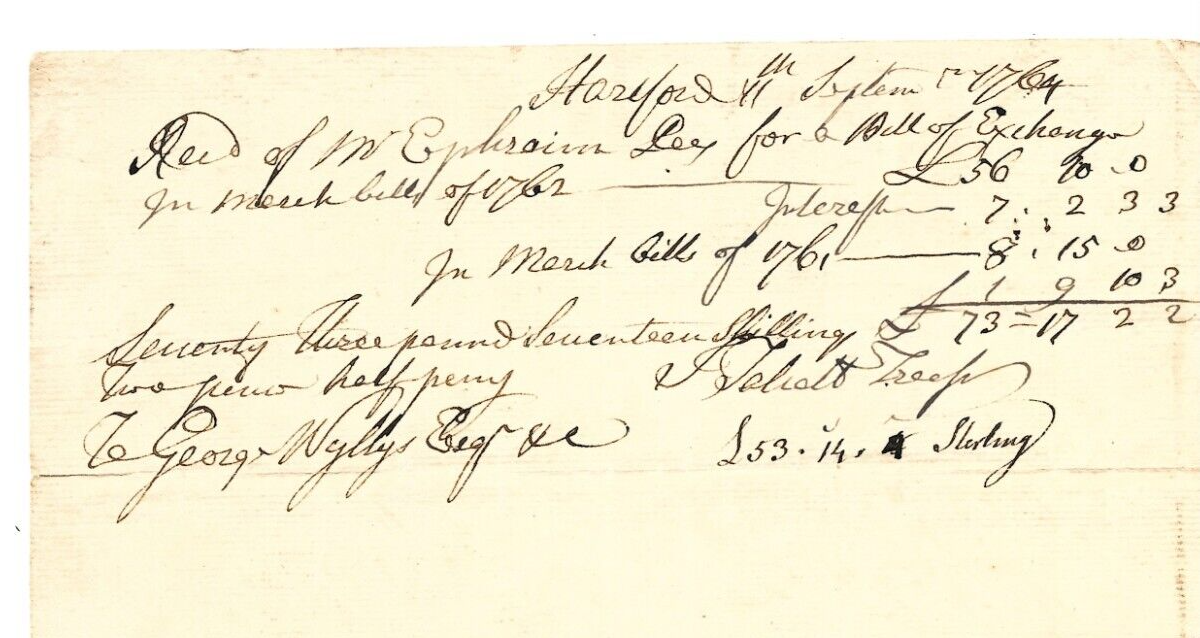 Hartford 11th Septemr 1764
Recd of Mr Ephraim Lee for a Bill of Exchange
In March bills of 1762 — £56 10 0
Interest — 7 : 2 3 3
In March bills of 1761 — 8 : 15 0
£ 1 9 10 3
Seventy Three pound Seventeen Shilling £ 73 = 17 2 2
Two penc half peny J Talcott Treasr
To George Wyllys Esqr &c £53 . 14 . 4 Sterling